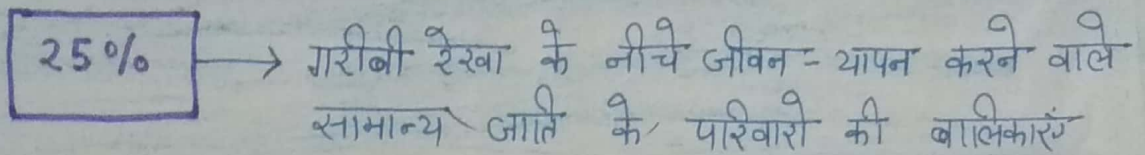 25% → गरीबी रेखा के नीचे जीवन - यापन करने वाले
सामान्य जाति के परिवारो की बालिकाएं